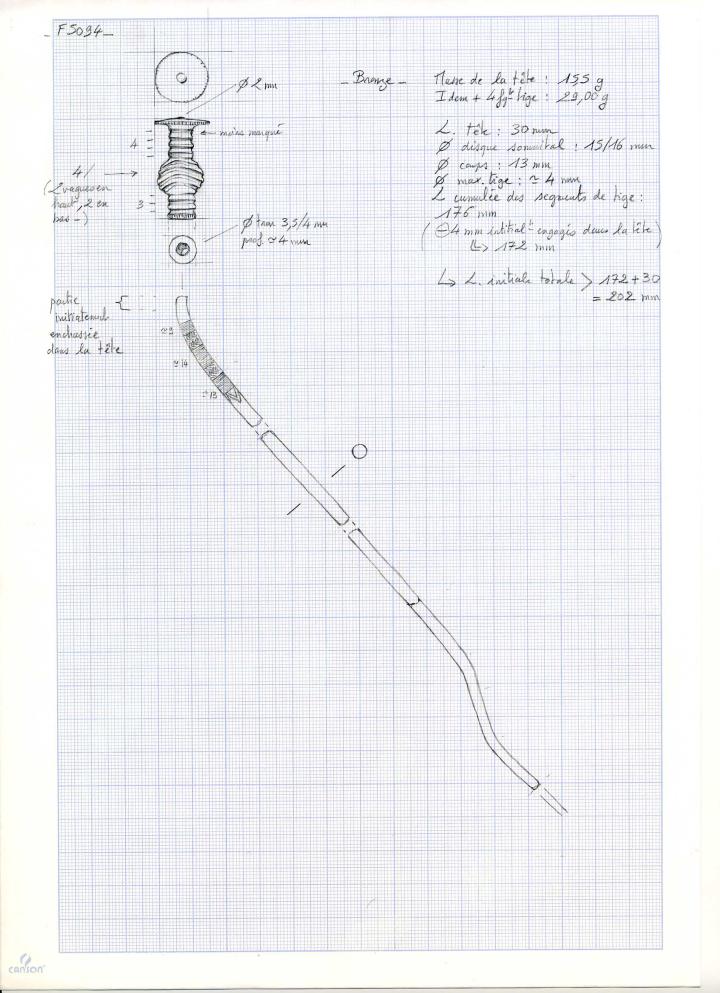 _ F5094_
Ø 2 mm
_ Bronze _
Masse de la tête : 15,5 g
Idem + 4 fgts tige : 29,00 g
← moins marqué
4
L. tête : 30 mm
Ø disque sommital : 15/16 mm
Ø corps : 13 mm
Ø max. tige : ≃ 4 mm
L cumulée des segments de tige :
176 mm
(⊖4 mm initialt engagés dans la tête)
↳ 172 mm
↳ L. initiale totale > 172 + 30
= 202 mm
4/ →
(2 vagues en
haut, 2 en
bas -)
3
Ø trou 3,5/4 mm
prof. ≃ 4 mm
partie
initialement
enchassée
dans la tête
≃ 9
≃ 14
≃ 13
CANSON